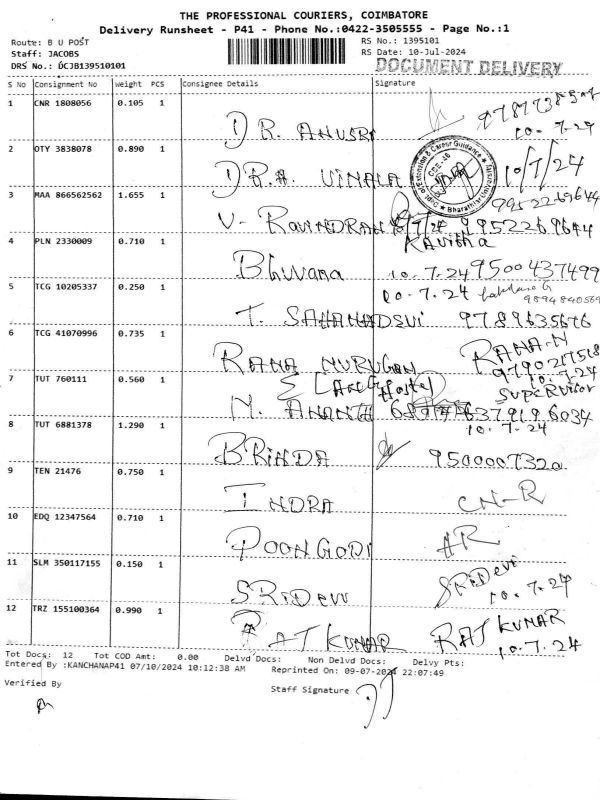 THE PROFESSIONAL COURIERS, COIMBATORE
Delivery Runsheet - P41 - Phone No.:0422-3505555 - Page No.:1
Route: B U POST
RS No.: 1395101
Staff: JACOBS
RS Date: 10-Jul-2024
DRS No.: DCJB139510101
DOCUMENT DELIVERY
S No Consignment No Weight PCS Consignee Details Signature
1 CNR 1808056 0.105 1
DR. ANUSRI
10.7.24
2 OTY 3838078 0.890 1
DR.A. VIMALA 10/7/24
3 MAA 866562562 1.655 1
9952269644
V- RAVINDRAN 9952269644
Kavitha
4 PLN 2330009 0.710 1
Bhuvana 10.7.24 9500437499
5 TCG 10205337 0.250 1
10.7.24
9894840569
T. SAHANADEVI 9789635676
6 TCG 41070996 0.735 1
RAMA MURUGAN RAMA.N
9790217518
10.7.24
7 TUT 760111 0.560 1
Supervisor
M. ANANTH 6379196034
10.7.24
8 TUT 6881378 1.290 1
BRINDA 9500007320
9 TEN 21476 0.750 1
INDRA CN-R
10 EDQ 12347564 0.710 1
POONGODI
11 SLM 350117155 0.150 1
SRIDEVI SRIDevi
10.7.24
12 TRZ 155100364 0.990 1
RAJKUMAR RAJKUMAR
10.7.24
Tot Docs: 12 Tot COD Amt: 0.00 Delvd Docs: Non Delvd Docs: Delvy Pts:
Entered By :KANCHANAP41 07/10/2024 10:12:38 AM Reprinted On: 09-07-2024 22:07:49
Verified By
Staff Signature